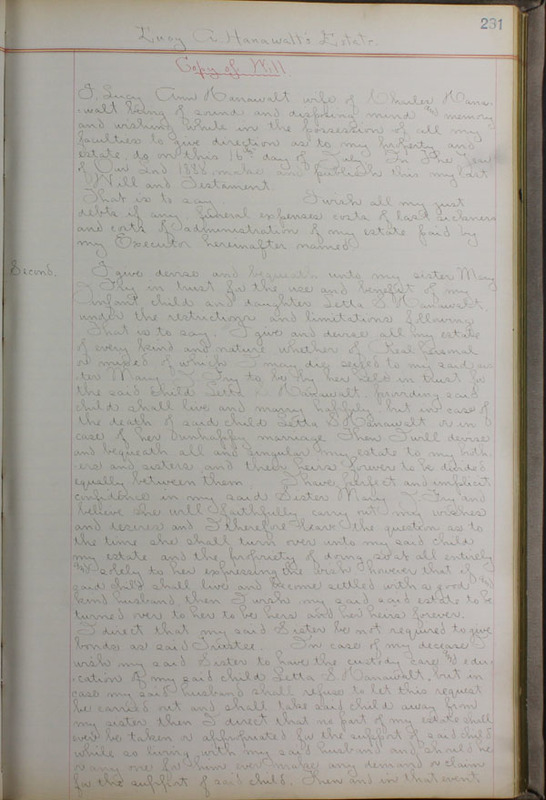 231
Lucy A Hanawalt's Estate.
Copy of Will
I, Lucy Ann Hanawalt wife of Charles Hana-
-walt being of sound and disposing mind & memory
and wishing while in the possession of all my
faculties to give direction as to my property and
estate, do on this 16th day of July In the Year
of Our Lord 1888 make and publish this my last
Will and Testament
That is to say I wish all my just
debts if any funeral expenses costs of last sickness
and costs of administration of my estate paid by
my Executor hereinafter named
Second. I give devise and bequeath unto my sister Mary
Fry in trust for the use and benefit of my
infant child and daughter Letta S Hanawalt.
under the restrictions and limitations following
That is to say. I give and devise all my estate
of every kind and nature whether of Real personal
or mixed of which I may die seized to my said sis
ter Mary Fry to be by her held in trust for
the said child Letta S Hanawalt. providing said
child shall live and marry happily but in case of
the death of said child Letta S Hanawalt or in
case of her unhappy marriage then I will devise
and bequeath all and singular my estate to my broth-
-ers and sisters and their heirs forever to be divided
equally between them. I have perfect and implicit
confidence in my said Sister Mary Fry and
believe she will faithfully carry out my wishes
and desires and I therefore leave the question as to
the time she shall turn over unto my said child
my estate and the propriety of doing so at all entirely
& solely to her expressing the wish however that if
said child shall live and become settled with a good &
kind husband then I wish my said said estate to be
turned over to her to be hers and her heirs forever.
I direct that my said Sister be not required to give
bonds as said Trustee. In case of my decease I
wish my said Sister to have the custody care & edu-
-cation of my said child Letta S Hanawalt, but in
case my said husband shall refuse to let this request
be carried out and shall take said child away from
my sister then I direct that no part of my estate shall
ever be taken or appropriated for the support of said child
while so living with my said husband and should he
or any one for him ever make any demand or claim
for the support of said child. Then and in that event